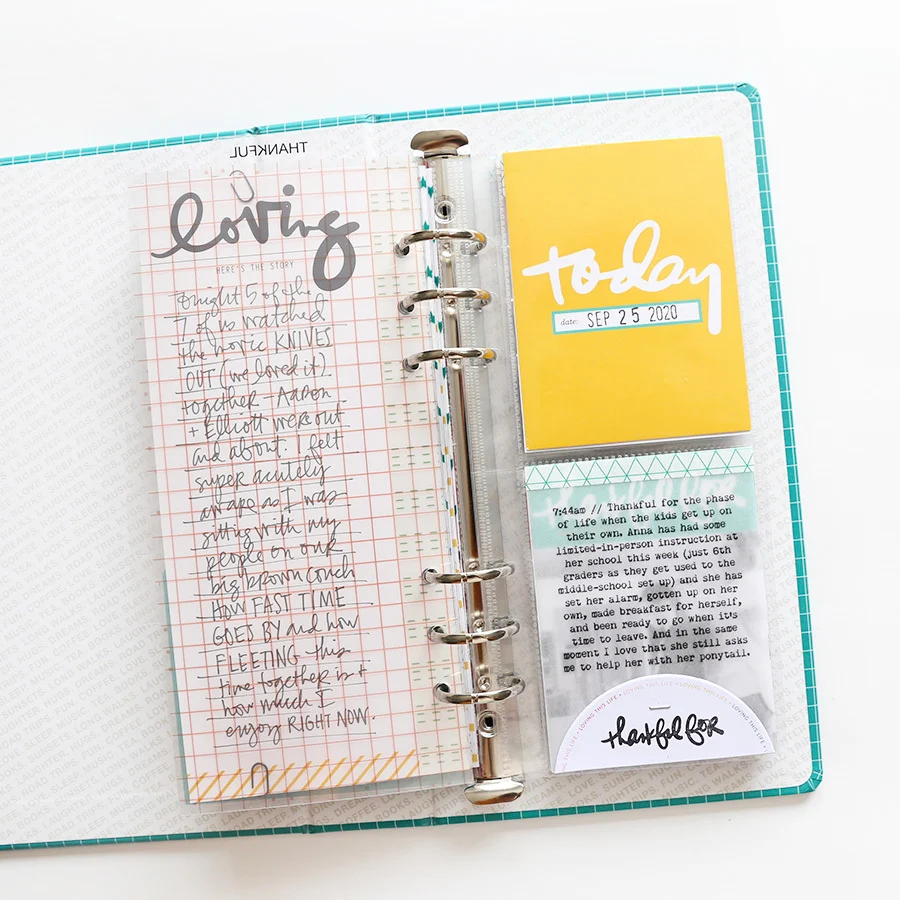 THANKFUL
loving
HERE'S THE STORY
tonight 5 of the
7 of us watched
the movie KNIVES
OUT (we loved it)
together - Aaron
+ Elliott were out
and about. I felt
super acutely
aware as I was
sitting with my
people on our
big brown couch
HOW FAST TIME
GOES BY and how
FLEETING this
time together is +
how much I
enjoy RIGHT NOW.
today
date: SEP 25 2020
7:44am // Thankful for the phase
of life when the kids get up on
their own. Anna has had some
limited-in-person instruction at
her school this week (just 6th
graders as they get used to the
middle-school set up) and she has
set her alarm, gotten up on her
own, made breakfast for herself,
and been ready to go when it's
time to leave. And in the same
moment I love that she still asks
me to help her with her ponytail.
LOVING THIS LIFE • LOVING THIS LIFE • LOVING THIS LIFE
thankful for